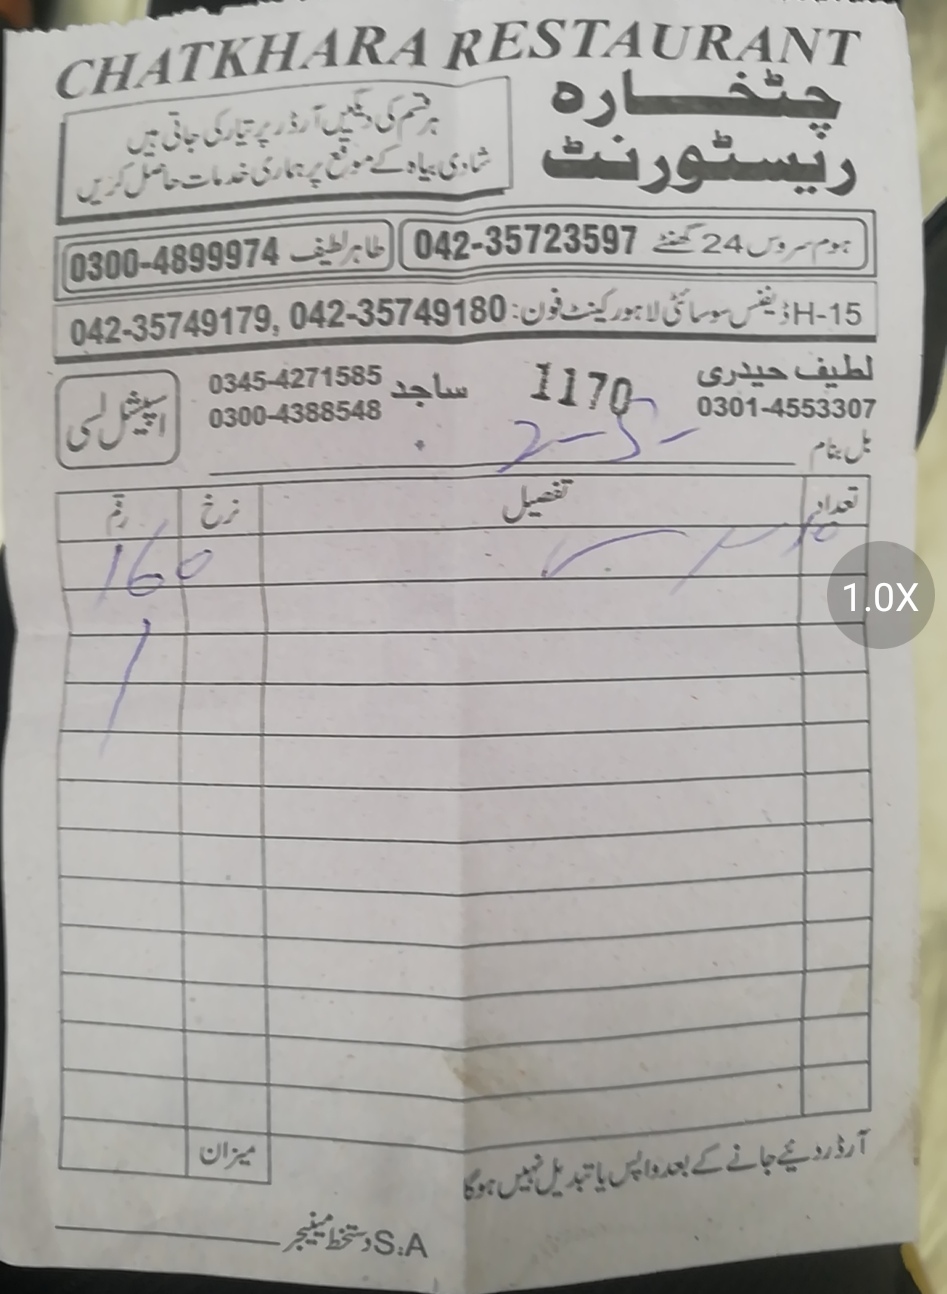 CHATKHARA RESTAURANT
چٹخارہ
ریسٹورنٹ
ہر قسم کی دیگیں آرڈر پر تیار کی جاتی ہیں
شادی بیاہ کے موقع پر ہماری خدمات حاصل کریں
ہوم سروس 24 گھنٹے 042-35723597
طاہر لطیف 0300-4899974
H-15 ڈیفنس سوسائٹی لاہور کینٹ فون: 042-35749179, 042-35749180
لطیف حیدری
0301-4553307
1170
ساجد 0345-4271585
0300-4388548
اسپیشل لسی
2-5-
بل بنام
تعداد تفصیل نرخ رقم
160
میزان
آرڈر دیئے جانے کے بعد واپس یا تبدیل نہیں ہوگا
S.A دستخط مینیجر
1.0X